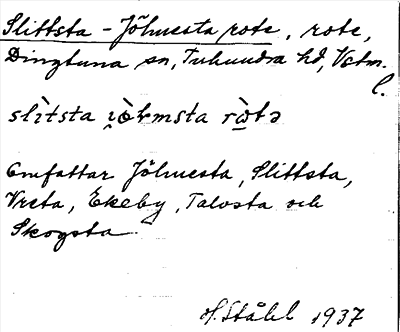 Slittsta - Jölmesta rote, rote,
Dingtuna sn, Tuhundra hd, Vstm.
l.
slìtsta i̯ò̀ɽmsta rò̱tə
Omfattar Jölmesta, Slittsta,
Vreta, Ekeby, Talvsta och
Skogsta
H. Ståhl 1937